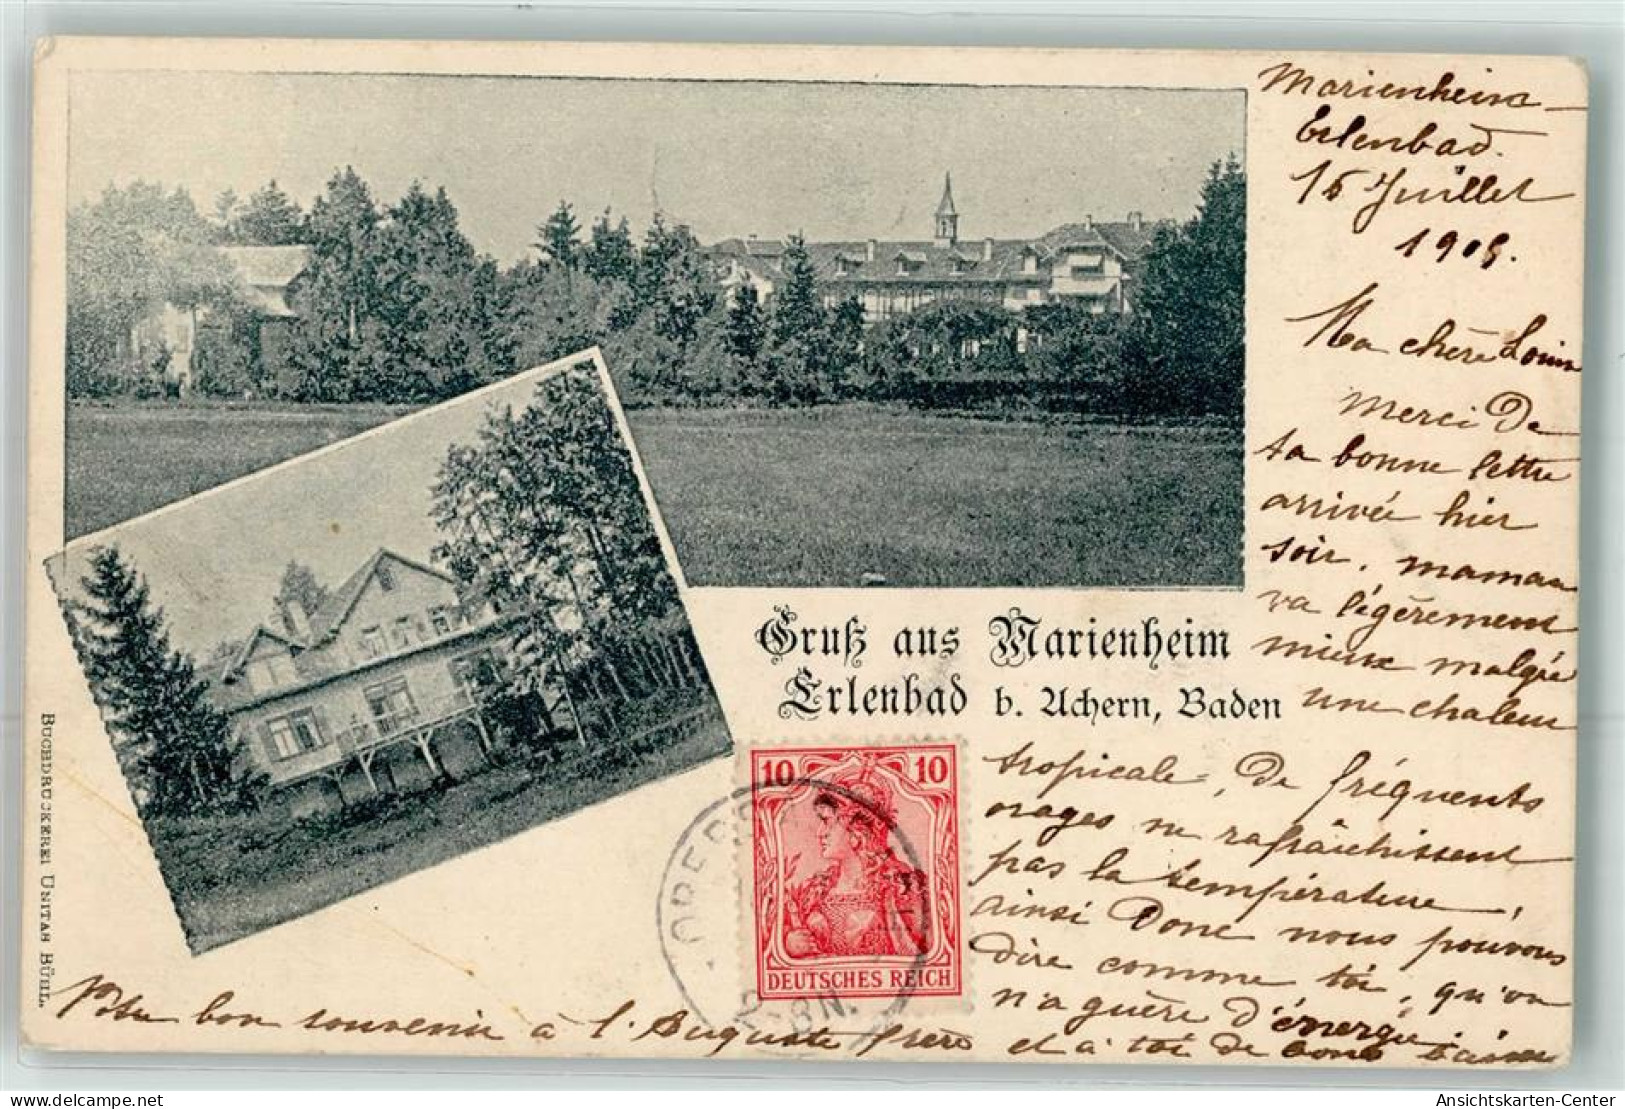 Marienheim-
Erlenbad.
15 Juillet
1905.
Ma chère
Merci de
ta bonne lettre
arrivée hier
soir. maman
va légèrement
mieux malgré
une chaleur
tropicale, De fréquents
orages ne rafraîchissent
pas la température,
ainsi Donc nous pouvons
dire comme toi, qu'on
n'a guère d'énergie.
bon souvenir à l'Auguste frère et à toi de bons
Gruß aus Marienheim
Erlenbad b. Achern, Baden
10 10
DEUTSCHES REICH
BUCHDRUCKEREI UNITAS BÜHL.
Ansichtskarten-Center